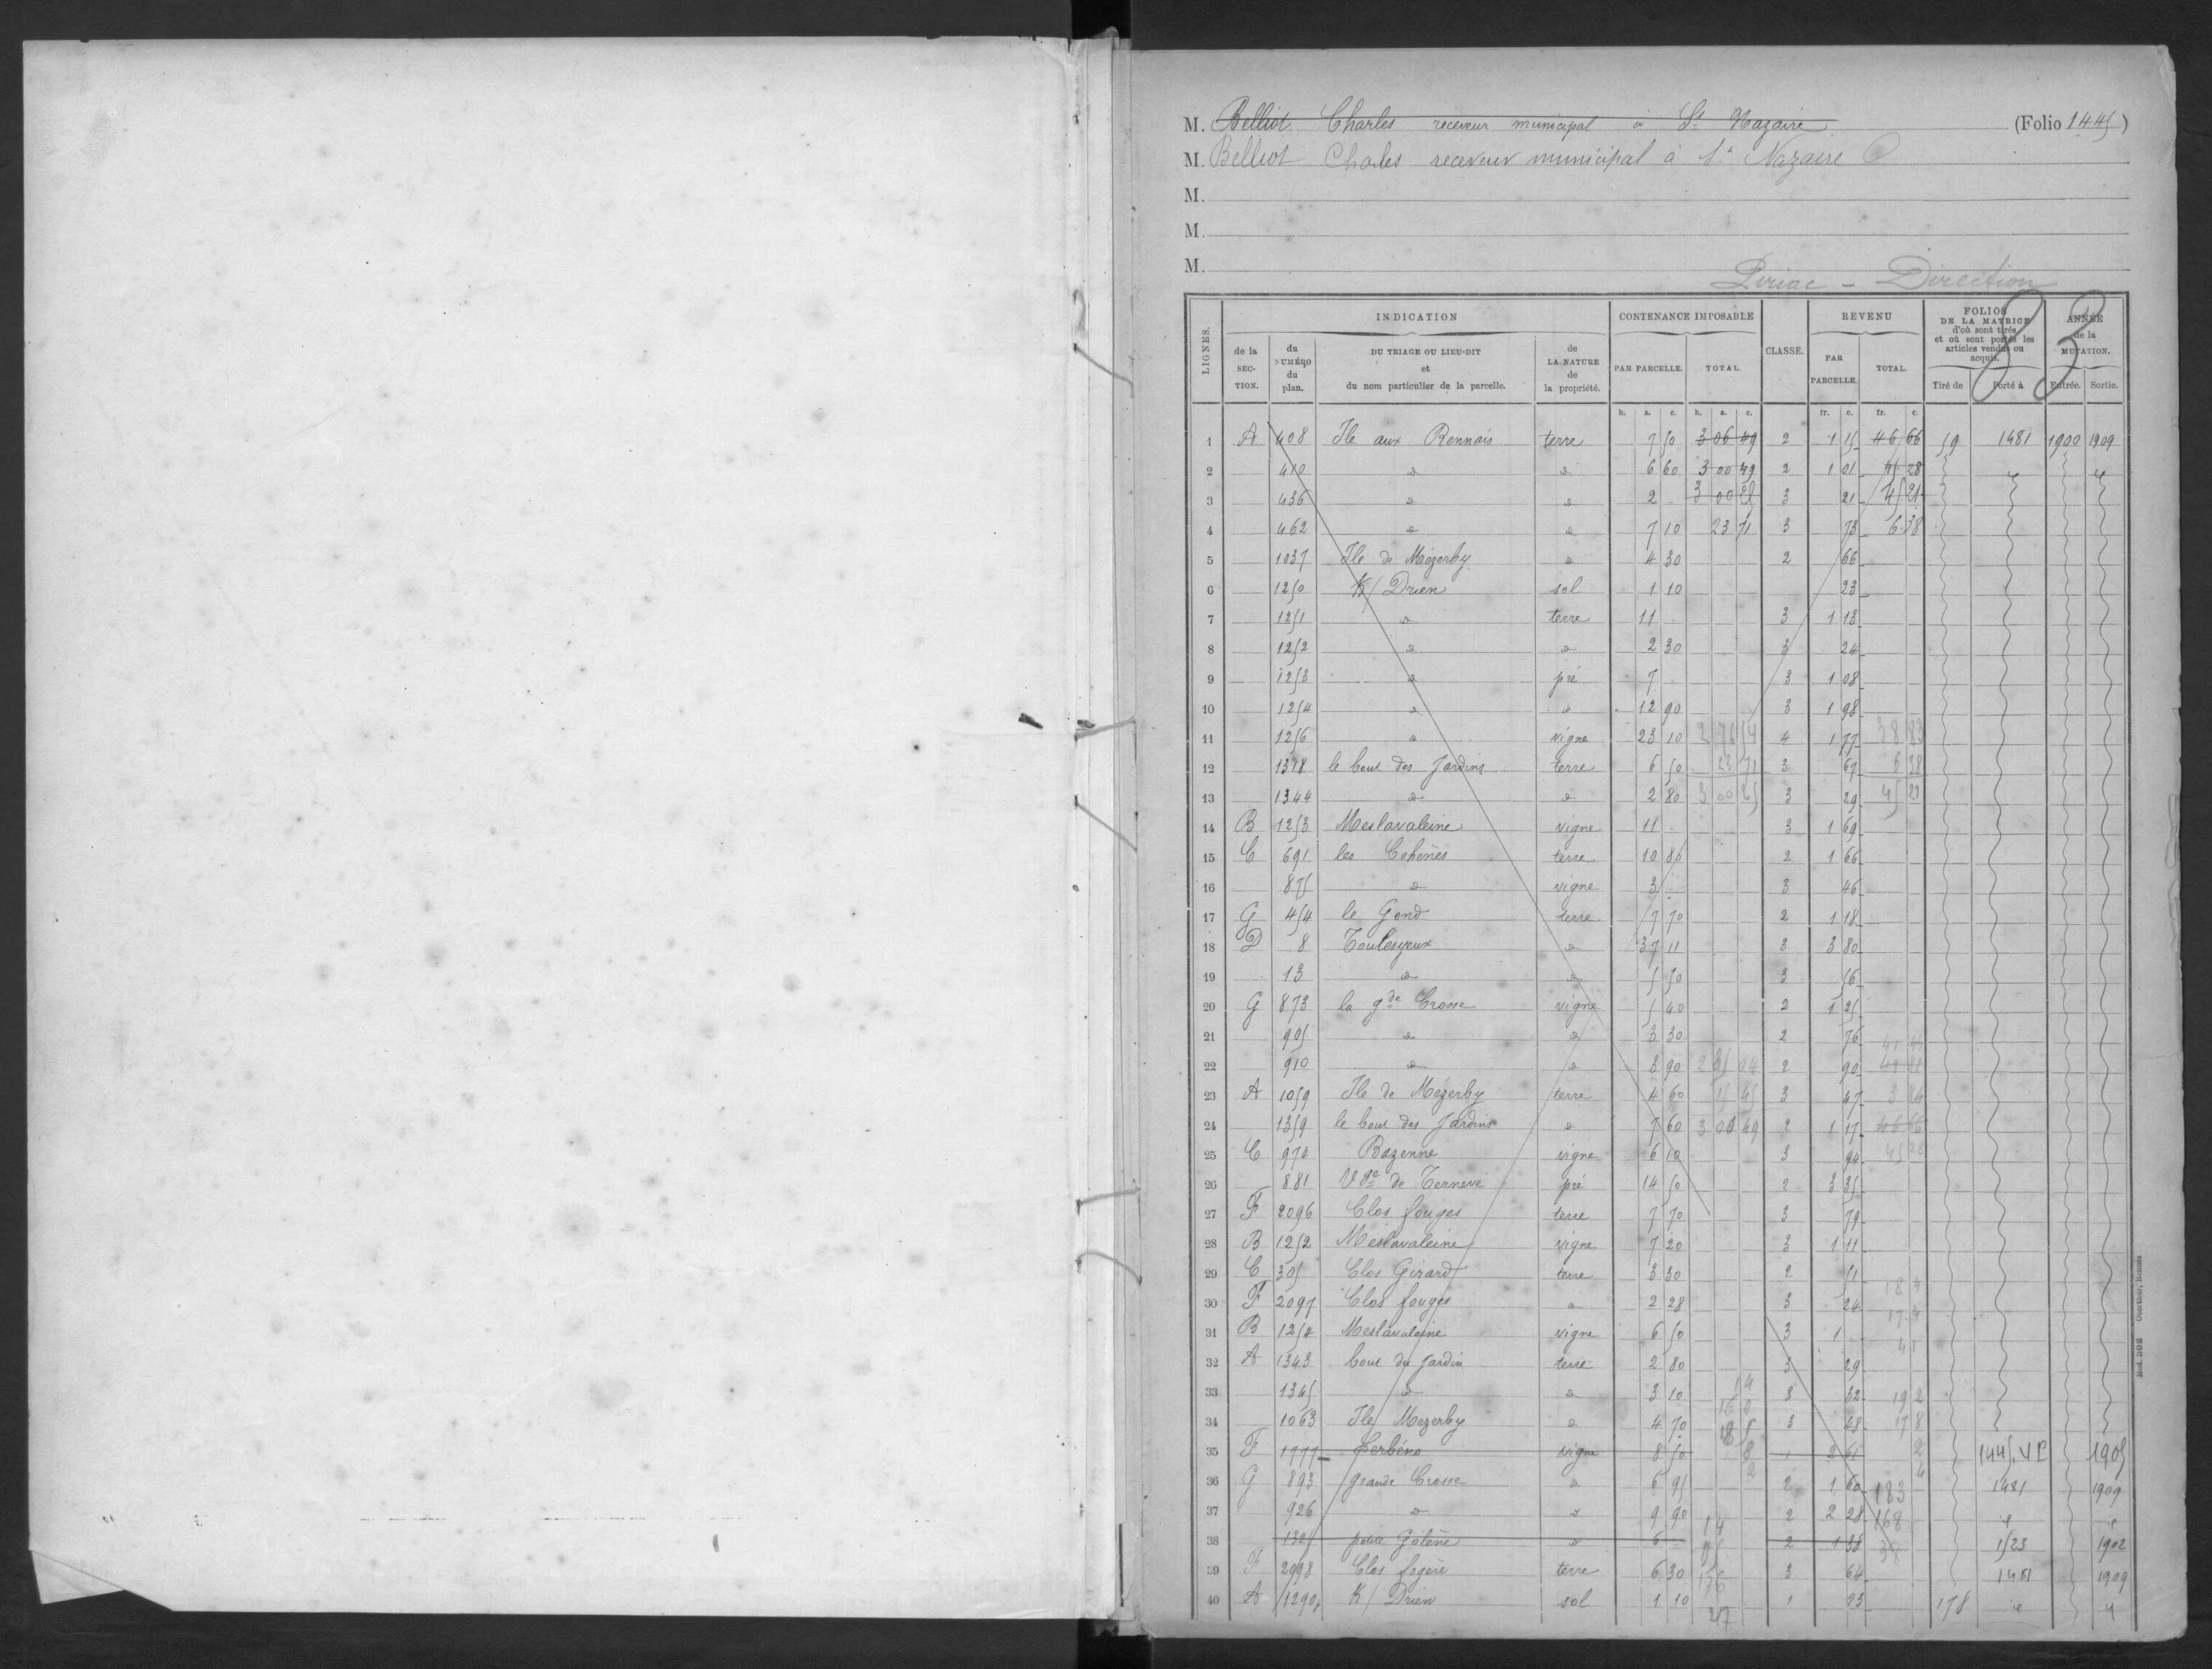 M. Belliot Charles receveur municipal à St Nazaire (Folio 1445)
M. Belliot Charles receveur municipal à St Nazaire
M.
M.
M.
Piriac - Direction
LIGNES. INDICATION CONTENANCE IMPOSABLE CLASSE. REVENU FOLIOS DE LA MATRICE d'où sont tirés et où sont portés les articles vendus ou acquis. ANNÉE de la MUTATION.
de la SECTION. du NUMÉRO du plan. DU TRIAGE OU LIEU-DIT et du nom particulier de la parcelle. de LA NATURE de la propriété. PAR PARCELLE. TOTAL. PAR PARCELLE. TOTAL. Tiré de Porté à Entrée. Sortie.
h. a. c. h. a. c. fr. c. fr. c.
1 A 408 Ile aux Rennais terre 7 50 3 06 49 2 1 15 46 66 59 1481 1900 1909
2 410 d d 6 60 3 00 49 2 1 01 45 28
3 436 d d 2 3 00 25 3 21 45 21
4 462 d d 7 10 23 71 3 73 6 38
5 1037 Ile de Mézerby d 4 30 2 66
6 1250 K/Drien sol 1 10 23
7 1251 d terre 11 3 1 13
8 1252 d d 2 30 3 24
9 1253 d pré 7 3 1 08
10 1254 d d 12 90 3 1 98
11 1256 d vigne 23 10 2 76 54 4 1 77 38 83
12 1318 le bout des Jardins terre 6 50 23 71 3 67 6 38
13 1344 d d 2 80 3 00 25 3 29 45 21
14 B 1253 Meslavaleine vigne 11 3 1 69
15 C 691 les Cohènes terre 10 80 2 1 66
16 875 d vigne 3 3 46
17 G 454 le Gond terre 7 70 2 1 18
18 D 8 Toulesyeux d 37 11 3 3 80
19 13 d d 5 50 3 56
20 G 873 la gde Crosse vigne 5 40 2 1 25
21 905 d d 3 30 2 76
22 910 d d 3 90 2 90
23 A 1059 Ile de Mézerby terre 4 60 3 47
24 1359 le bout des Jardins d 7 60 2 1 17 46 66
25 C 974 Bozenne vigne 6 10 3 94 45 28
26 881 Vge de Ternevé pré 14 50 2 3 35
27 F 2096 Clos fouges terre 7 70 3 79
28 B 1252 Meslavaleine vigne 7 20 3 1 11
29 C 305 Clos Girard terre 3 30 2 51
30 F 2097 Clos fouges d 2 28 3 24
31 B 1254 Meslavaleine vigne 6 50 3 1
32 A 1343 bout du Jardin terre 2 80 3 29
33 1345 d d 3 10 3 32
34 1063 Ile Mezerby d 4 70 3 48
35 F 1777 Kerbéno vigne 8 50 1 2 61 1445 VP 1905
36 G 893 grande Crosse d 6 95 2 1 60 183 1481 1909
37 926 d d 9 90 2 2 28 168
38 1325 petite d 6 2 1 38 38 1523 1902
39 F 2098 Clos terre 6 30 176 3 64 1481 1909
40 A 1290 K/Drien sol 1 10 27 1 23 178
Mod. 302 Oberthur, Rennes